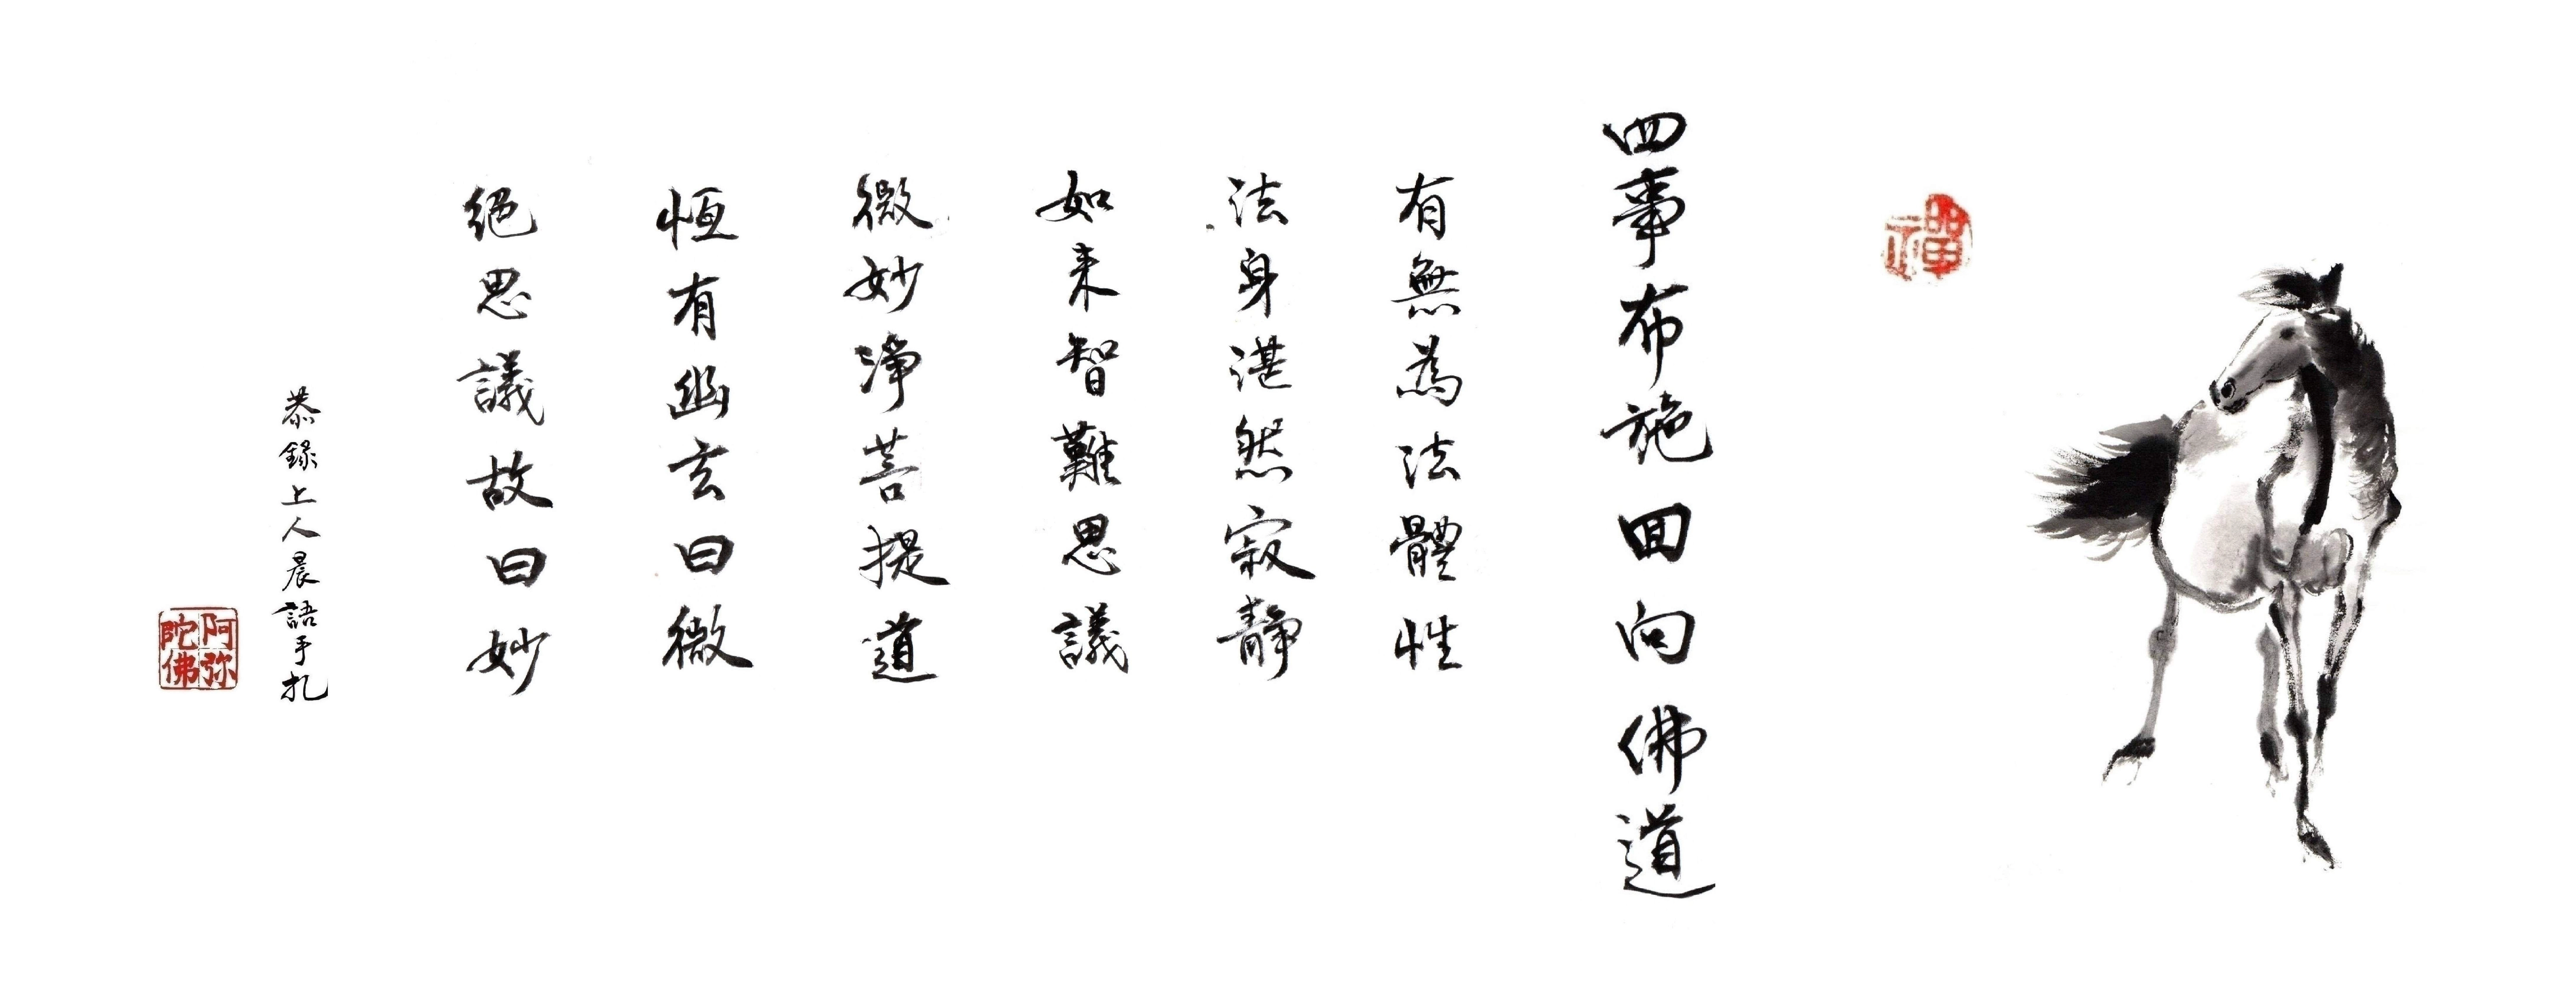 禪
四事布施回向佛道
有無為法體性
法身湛然寂靜
如来智難思議
微妙淨菩提道
恆有幽玄曰微
絕思議故曰妙
恭錄上人晨語手扎
阿弥陀佛